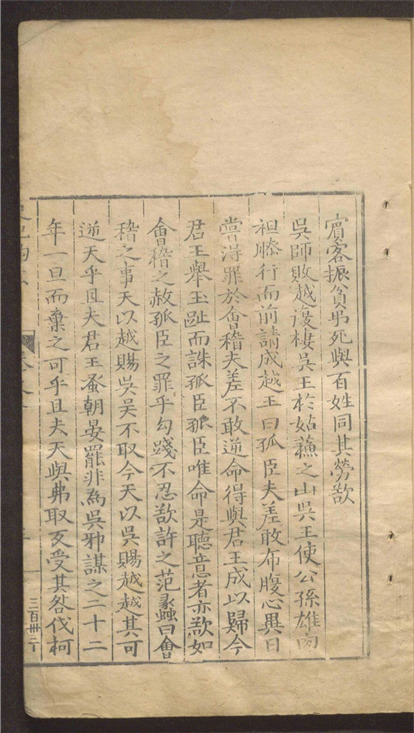 賓客振貧弔死與百姓同其勞歘
吳師敗越復棲吳王於姑蘇之山吳王使公孫雄肉
袒膝行而前請成越王曰孤臣夫差敢布腹心異日
嘗得罪於會稽夫差不敢逆命得與君王成以歸今
君王舉玉趾而誅孤臣孤臣唯命是聽意者亦歘如
會稽之赦孤臣之罪乎勾踐不忍歘許之范蠡曰會
稽之事天以越賜吳吳不取今天以吳賜越越其可
逆天乎且夫君王蚤朝晏罷非為吳邪謀之二十二
年一旦而棄之可乎且夫天與弗取反受其咎伐柯
三百卅二